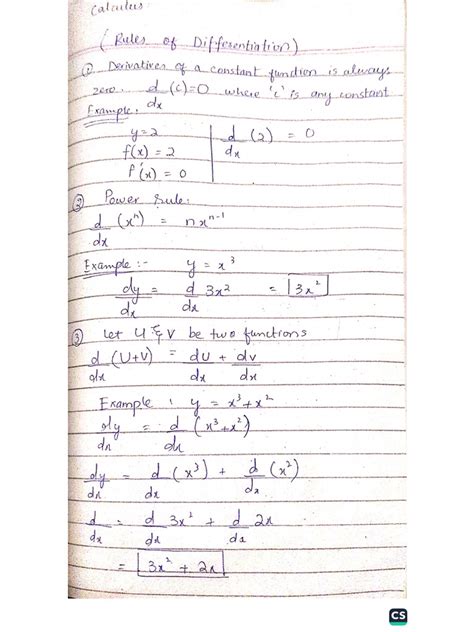 Calculus
(Rules of Differentiation)
① Derivatives of a constant function is always
zero. d/dx (c)=0 where 'c' is any constant
Example:
y=2 | d/dx (2) = 0
f(x) = 2
f'(x) = 0
② Power Rule:
d/dx (xⁿ) = nxⁿ⁻¹
Example :- y = x³
dy/dx = d/dx 3x² = 3x²
③ Let U & V be two functions
d/dx (U+V) = dU/dx + dv/dx
Example : y = x³+x²
dy/dx = d/dx (x³+x²)
dy/dx = d/dx (x³) + d/dx (x²)
d/dx = d/dx 3x² + d/dx 2x
= 3x² + 2x
CS